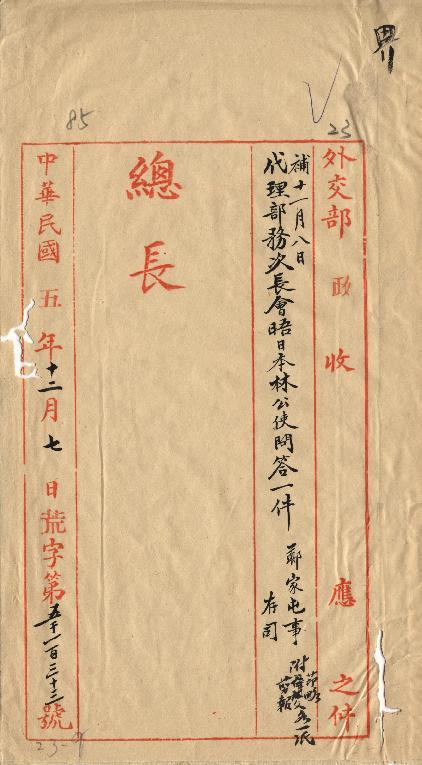 界
85
23
外交部 政 收 應 之件
補十一月八日
代理部務次長會晤日本林公使問答一件
鄭家屯事
存司
附節略
剪報
總長
中華民國五年十二月七日荒字第五千一百三十三號